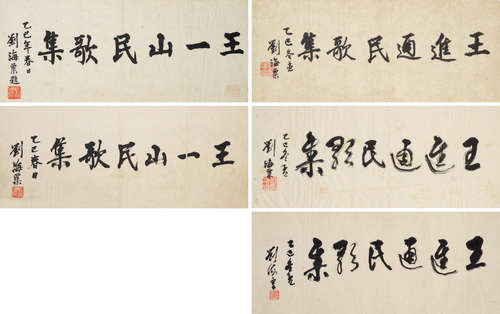 王一山民歌集
乙巳年春日
劉海粟題
王一山民歌集
乙巳春日
劉海粟
王進通民歌集
乙巳冬至
劉海粟
王進通民歌集
乙巳冬至
劉海粟
王進通民歌集
乙巳冬至
劉海粟